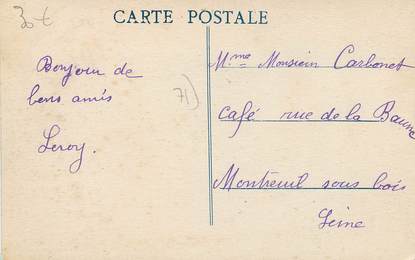 30 €
CARTE POSTALE
Bonjour de
bons amis
Leroy.
71)
Mme Monsieur Carbonet
café rue de la Baune
Montreuil sous bois
Seine